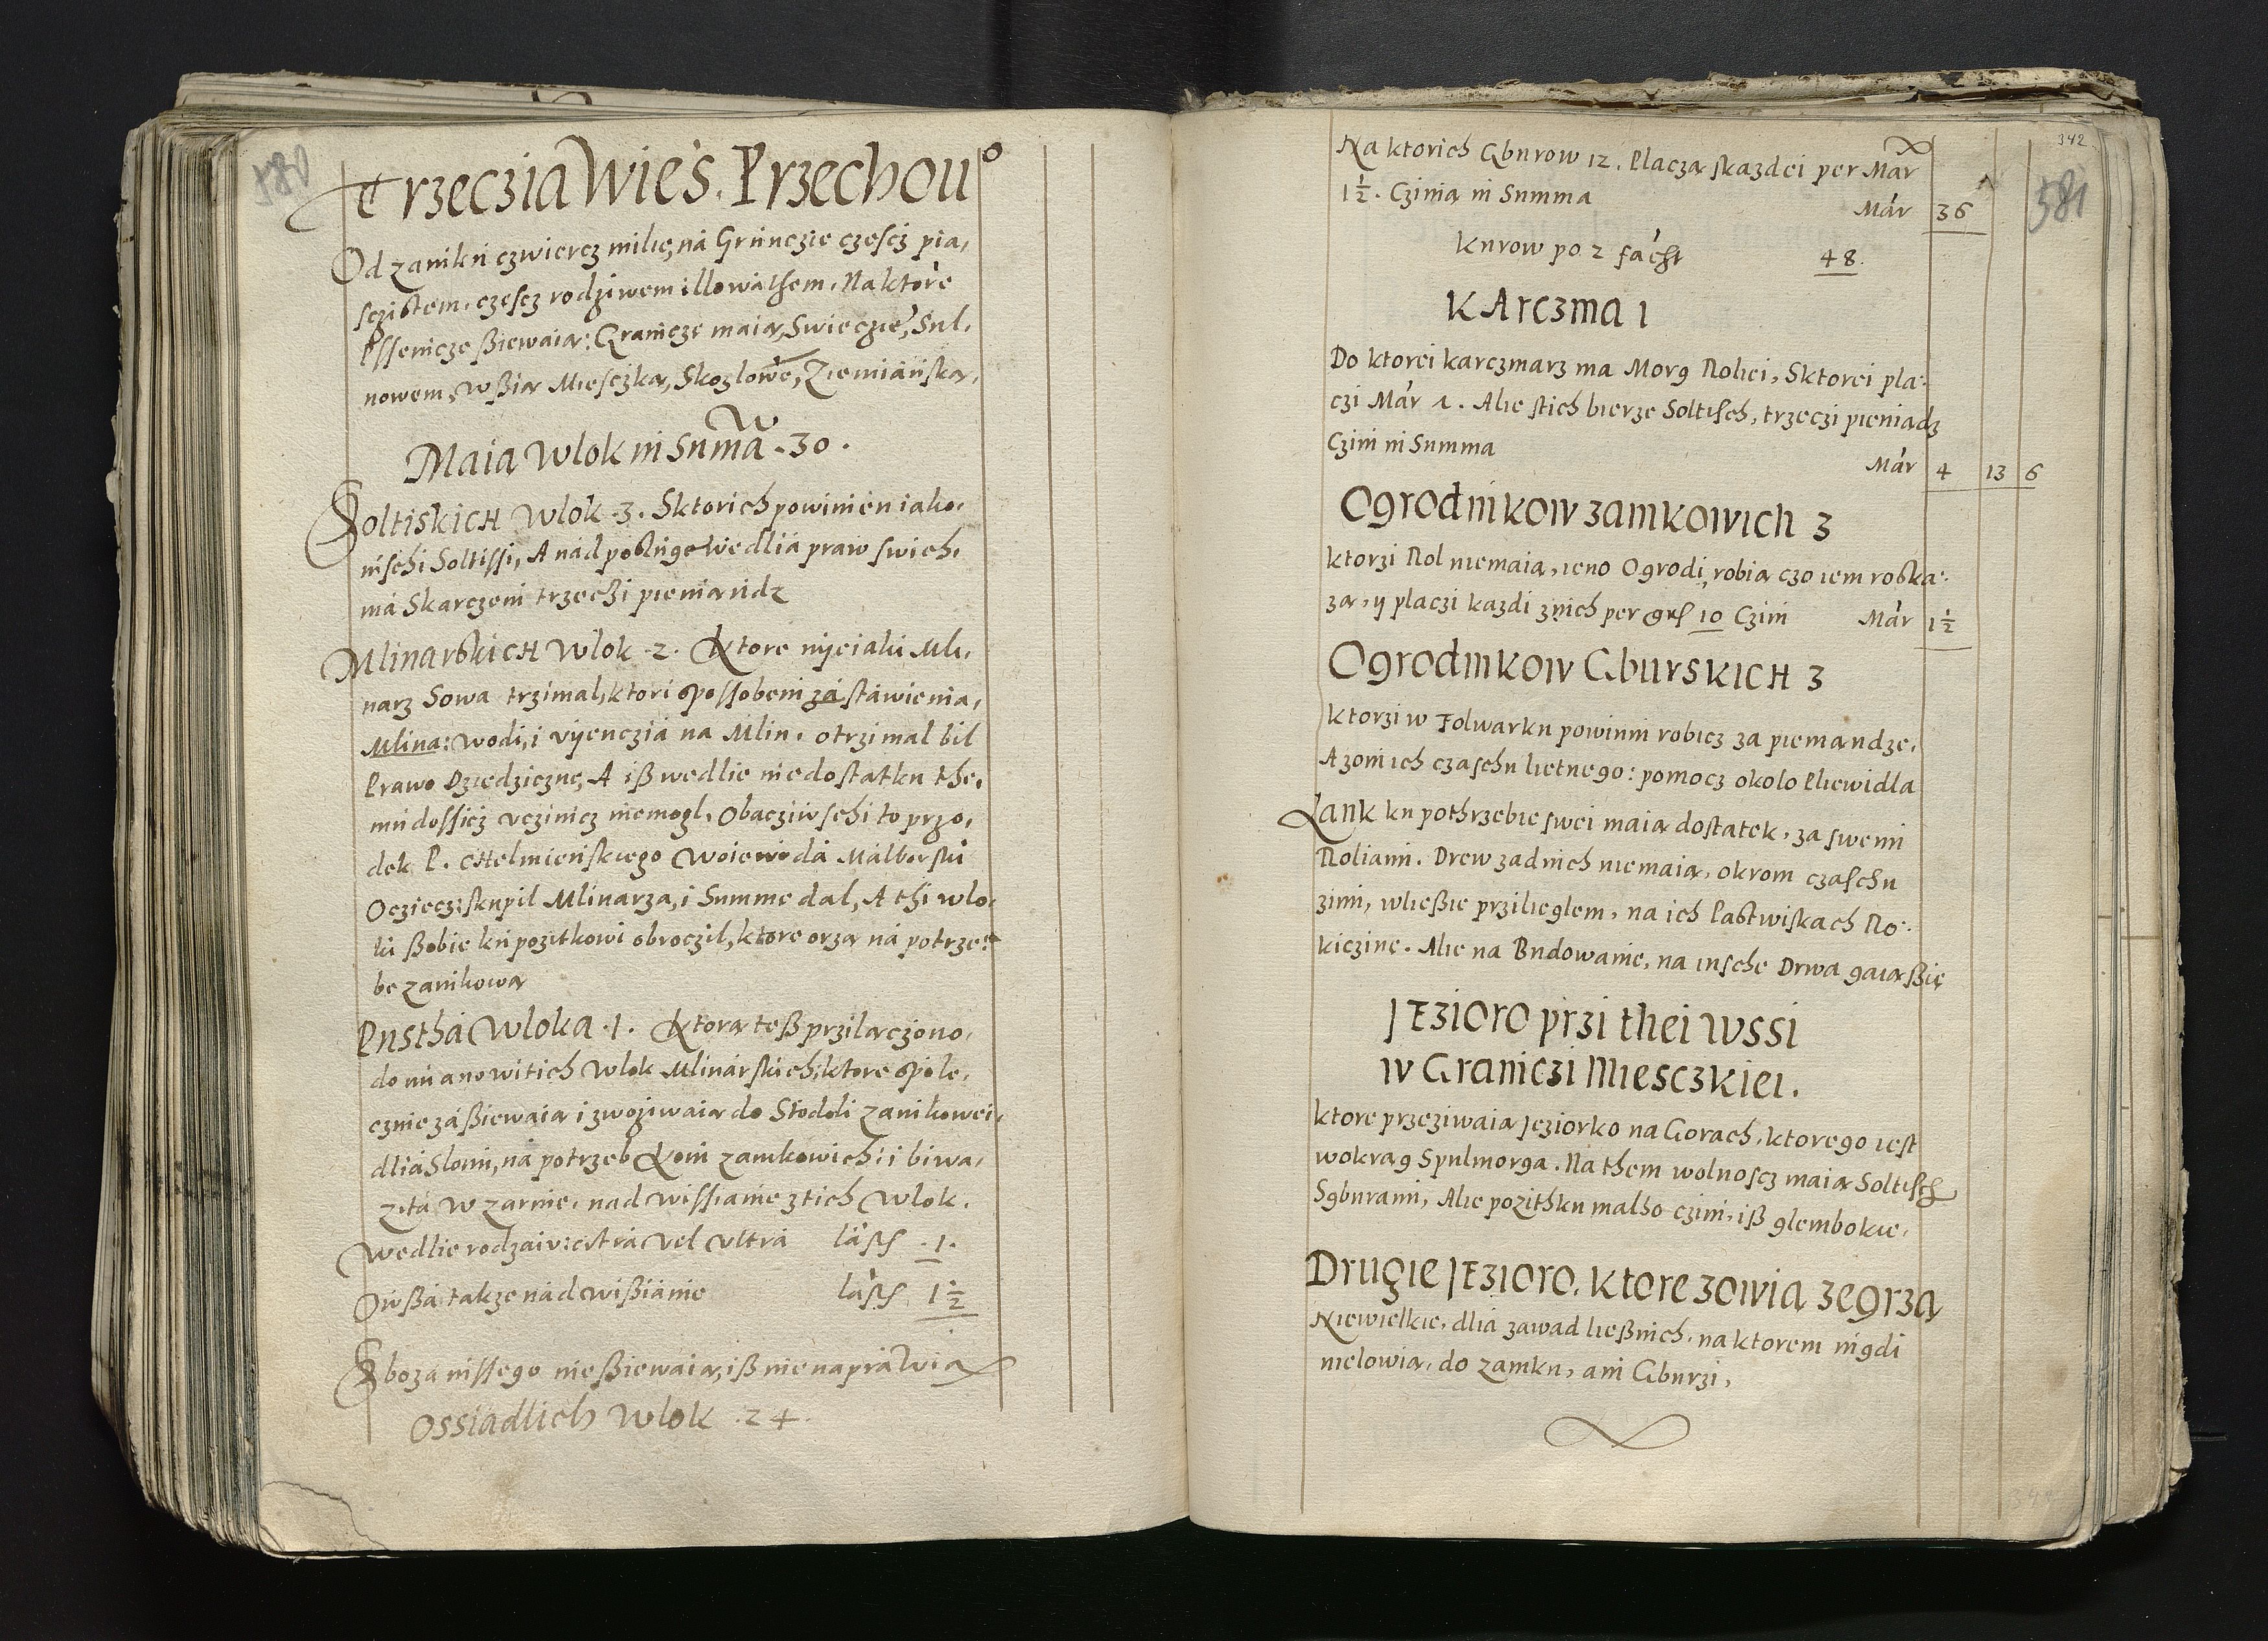 580
Trzeczia Wieś. Przechou°
Od zamku czwiercz milię, ná Grunczie częscz pia,
sczistem, częscz rodziwem illowáthem. Na ktore
Pssenicze ßiewaią: Granicze maią, Swieczie, Sul,
nowem, wßią Miesczką, Skozlowe, Ziemiáńską,
Maia Wlok in Suma . 30 .
SoltiskicH Wlok . 3 . Sktorich powinien iako,
inschi Soltissi, A nád poslugę wedlia praw swich,
má Skarczmi trzeczi pieniandz
MlinarskicH Wlok . 2 . Ktore nijeiaki Mli,
narz Sowa trzimal, ktori spossobem zá stáwienia,
Mlina: wodi, i vijenczia na Mlin, otrzimal bil
Prawo Dziedziczne, A iß wedlie niedostatku the,
mu dossicz vczinicz niemogl, Obacziwschi to przo,
dek P. cHelmieńskiego Woiewoda Málborski
Oczieczi skupil Mlinarza, i Summe dal, A thi wlo,
ki ßobie ku pozitkowi obroczil, ktore orza ná potrze:
be zamkowa
Pustha Wloka . 1 . Ktora teß przilączono,
do mianowitich Wlok Mlinárskich, ktore spole,
cznie záßiewaią i zwoziwaią do Stodoli zamkowei,
dlia Slomi, ná potrzeb Koni zamkowich: i biwa,
zita w zarnie, nad wissianie ztich Wlok.
Wedlie rodzaiu: citrá vel vltrá láſt . 1 .
Owßá takze nád wißiánie láſt 1 1/2
Zboza inssego nie ßiewaią, iß nie napráwią
Ossiádlich Wlok . 24 .
342
581
Na ktorich Gburow 12. Placza skazdei per Mar
1 1/2. Czinią in Summa Már 36
Kurow po 2 fácht 48.
KArczma 1
Do ktorei karczmarz ma Morg Roliei, Sktorei pla:
czi Már 1. Alie stich bierze Soltisch, trzeczi pieniadz
Czini in Summa Már 4 13 6
Ogrodnikow zamkowich 3
ktorzi Rol niemaią, ieno Ogrodi, robia czo iem roska:
zą, y placzi kazdi znich per gr 10 Czini Már 1 1/2
Ogrodnikow GburskicH 3
ktorzi w Folwarku powinni robicz za pieniandze,
A zoni ich czaschu lietnego: pomocz okolo Pliewidla
Lank ku pothrzebie swei maią dostatek, za swemi
Roliami. Drew zadnich niemaią, okrom czaschu
zimi, wließie przilieglem, na ich Pastwiskach Ro:
kiczine. Alie na Budowanie, na insche Drwa gaią ßię
JEzioro przi thei wssi
w Graniczi Miesczkiei.
ktore przeziwaią Jeziorko na Gorach, ktorego iest
wokrag Spulmorga. Na them wolnoscz maią Soltisch
Sgburami, Alie pozithku malho czini, iß glembokie,
Drugie JEzioro. ktore zowią zegrzą
Niewielkie, dlia zawad ließnich, na ktorem nigdi
nielowią, do zamku, ani Gburzi,